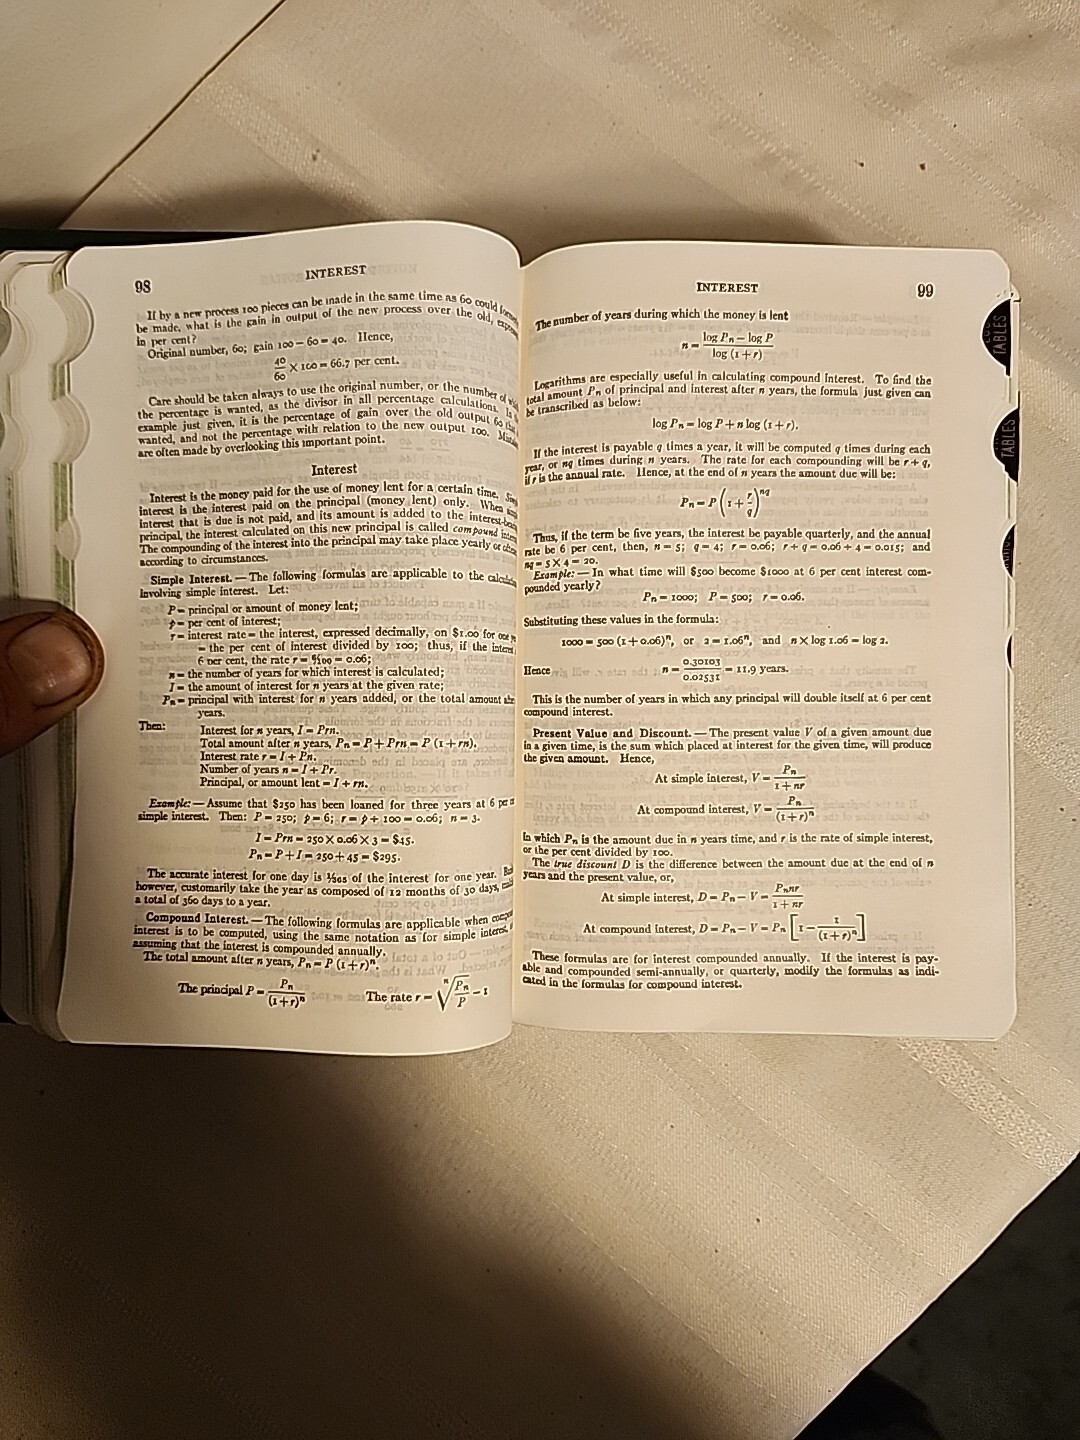 98
INTEREST
If by a new process 100 pieces can be made in the same time as 60 could
be made, what is the gain in output of the new process over the old,
in per cent?
Original number, 60; gain 100 − 60 = 40. Hence,
40/60 × 100 = 66.7 per cent.
Care should be taken always to use the original number, or the number of
the percentage is wanted, as the divisor in all percentage calculations. In
example just given, it is the percentage of gain over the old output 60 that
wanted, and not the percentage with relation to the new output 100.
are often made by overlooking this important point.
Interest
Interest is the money paid for the use of money lent for a certain time.
interest is the interest paid on the principal (money lent) only. When
interest that is due is not paid, and its amount is added to the interest-
principal, the interest calculated on this new principal is called compound
The compounding of the interest into the principal may take place yearly or
according to circumstances.
Simple Interest. — The following formulas are applicable to the
involving simple interest. Let:
P = principal or amount of money lent;
p = per cent of interest;
r = interest rate = the interest, expressed decimally, on $1.00 for one
= the per cent of interest divided by 100; thus, if the interest
6 per cent, the rate r = 6/100 = 0.06;
n = the number of years for which interest is calculated;
I = the amount of interest for n years at the given rate;
Pn = principal with interest for n years added, or the total amount
years.
Then:
Interest for n years, I = Prn.
Total amount after n years, Pn = P + Prn = P (1 + rn).
Interest rate r = I ÷ Pn.
Number of years n = I ÷ Pr.
Principal, or amount lent = I ÷ rn.
Example: — Assume that $250 has been loaned for three years at 6 per
simple interest. Then: P = 250; p = 6; r = p ÷ 100 = 0.06; n = 3.
I = Prn = 250 × 0.06 × 3 = $45.
Pn = P + I = 250 + 45 = $295.
The accurate interest for one day is 1/365 of the interest for one year.
however, customarily take the year as composed of 12 months of 30 days,
a total of 360 days to a year.
Compound Interest. — The following formulas are applicable when
interest is to be computed, using the same notation as for simple interest,
assuming that the interest is compounded annually.
The total amount after n years, Pn = P (1 + r)ⁿ.
The principal P = Pn/(1 + r)ⁿ The rate r = ⁿ√(Pn/P) − 1
INTEREST
99
The number of years during which the money is lent
n = (log Pn − log P)/(log (1 + r))
Logarithms are especially useful in calculating compound interest. To find the
total amount Pn of principal and interest after n years, the formula just given can
be transcribed as below:
log Pn = log P + n log (1 + r).
If the interest is payable q times a year, it will be computed q times during each
year, or nq times during n years. The rate for each compounding will be r ÷ q,
if r is the annual rate. Hence, at the end of n years the amount due will be:
Pn = P (1 + r/q)^nq
Thus, if the term be five years, the interest be payable quarterly, and the annual
rate be 6 per cent, then, n = 5; q = 4; r = 0.06; r ÷ q = 0.06 ÷ 4 = 0.015; and
nq = 5 × 4 = 20.
Example: — In what time will $500 become $1000 at 6 per cent interest com-
pounded yearly?
Pn = 1000; P = 500; r = 0.06.
Substituting these values in the formula:
1000 = 500 (1 + 0.06)ⁿ, or 2 = 1.06ⁿ, and n × log 1.06 = log 2.
Hence n = 0.30103/0.02531 = 11.9 years.
This is the number of years in which any principal will double itself at 6 per cent
compound interest.
Present Value and Discount. — The present value V of a given amount due
in a given time, is the sum which placed at interest for the given time, will produce
the given amount. Hence,
At simple interest, V = Pn/(1 + nr)
At compound interest, V = Pn/(1 + r)ⁿ
in which Pn is the amount due in n years time, and r is the rate of simple interest,
or the per cent divided by 100.
The true discount D is the difference between the amount due at the end of n
years and the present value, or,
At simple interest, D = Pn − V = Pnnr/(1 + nr)
At compound interest, D = Pn − V = Pn [1 − 1/(1 + r)ⁿ]
These formulas are for interest compounded annually. If the interest is pay-
able and compounded semi-annually, or quarterly, modify the formulas as indi-
cated in the formulas for compound interest.
TABLES
TABLES